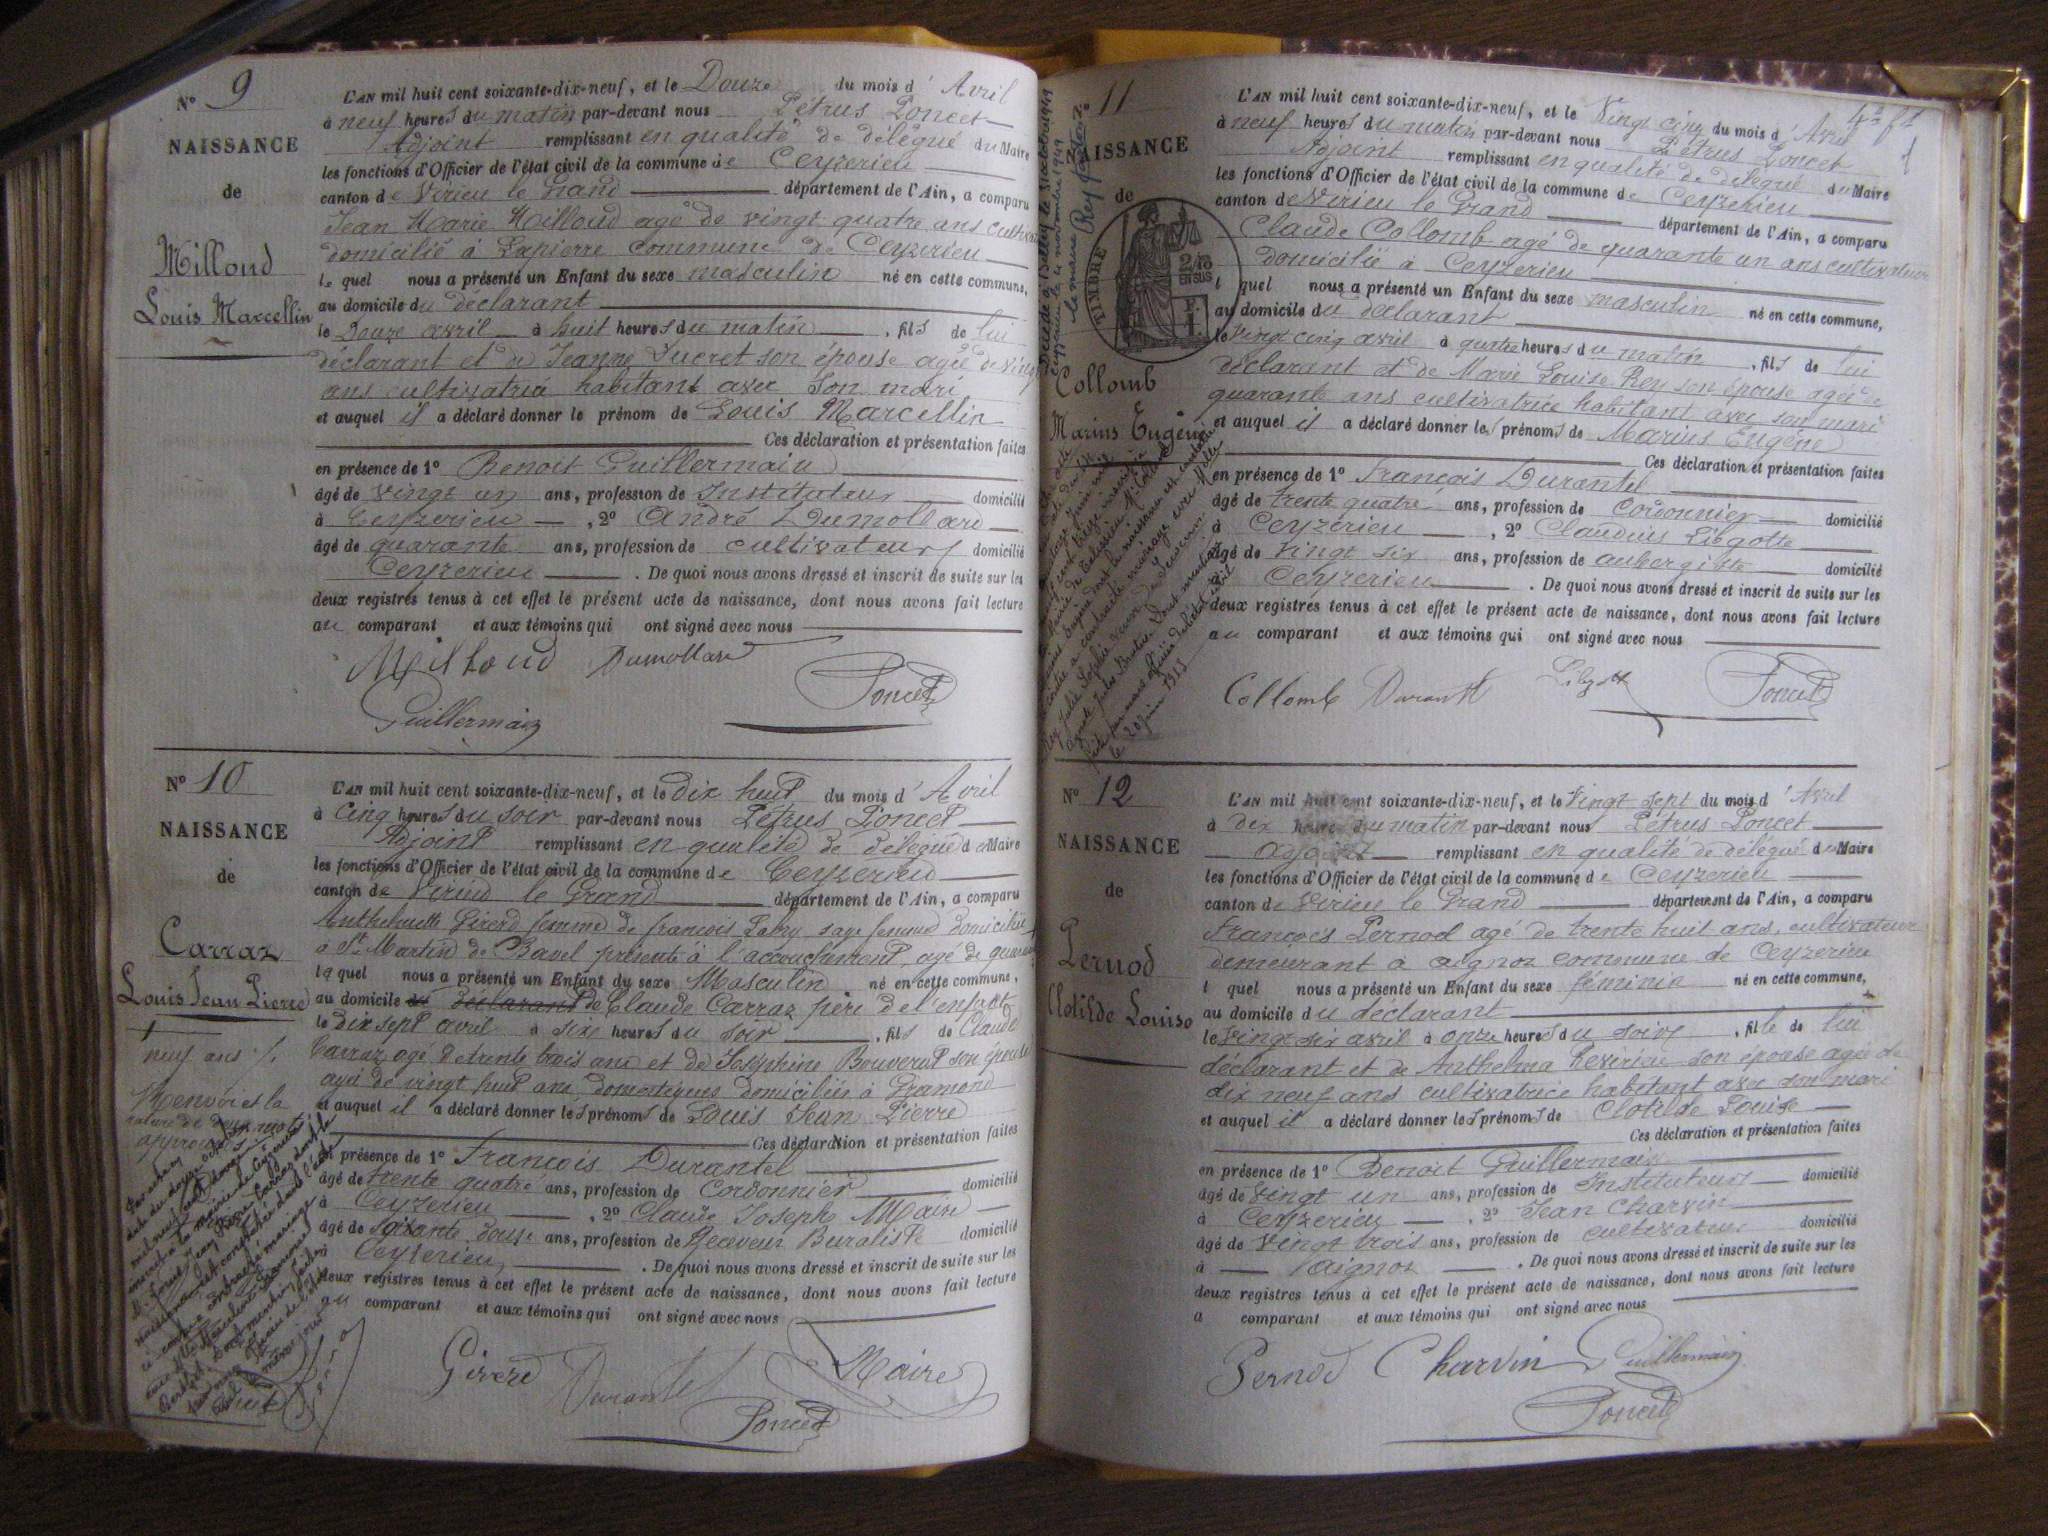 N° 9
NAISSANCE
de
Milloud
Louis Marcellin
L'AN mil huit cent soixante-dix-neuf, et le Douze du mois d'Avril
à neuf heures du matin par-devant nous Pétrus Poncet
Adjoint remplissant en qualité de délégué du Maire
les fonctions d'Officier de l'état civil de la commune de Ceyzerieu
canton de Virieu le Grand département de l'Ain, a comparu
Jean Marie Milloud agé de vingt quatre ans
domicilié à Lapierre commune de Ceyzerieu
lequel nous a présenté un Enfant du sexe masculin né en cette commune,
au domicile du déclarant
le Douze avril à huit heures du matin, fils de lui
déclarant et de Jeanne Sucret son épouse agée de vingt
ans cultivatrice habitant avec son mari
et auquel il a déclaré donner le prénom de Louis Marcellin
Ces déclaration et présentation faites
en présence de 1° Benoit Guillermain
âgé de vingt un ans, profession de Instituteur domicilié
à Ceyzerieu, 2° André Dumollard
âgé de quarante ans, profession de cultivateur domicilié
Ceyzerieu. De quoi nous avons dressé et inscrit de suite sur les
deux registres tenus à cet effet le présent acte de naissance, dont nous avons fait lecture
au comparant et aux témoins qui ont signé avec nous
Milloud Dumollard Poncet
Guillermain
N° 10
NAISSANCE
de
Carraz
Louis Jean Pierre
neuf ans
Renvoi et la
rature de deux mots
approuvés
L'AN mil huit cent soixante-dix-neuf, et le dix huit du mois d'Avril
à cinq heures du soir par-devant nous Pétrus Poncet
Adjoint remplissant en qualité de délégué du Maire
les fonctions d'Officier de l'état civil de la commune de Ceyzerieu
canton de Virieu le Grand département de l'Ain, a comparu
Girerd femme de françois sage femme domiciliée
à St Martin de Bavel présente à l'accouchement, agé de quarante
laquel nous a présenté un Enfant du sexe Masculin né en cette commune,
au domicile du déclarant de Claude Carraz père de l'enfant
le dix sept avril à six heures du soir, fils de Claude
Carraz agé de trente trois ans et de Joséphine Bouverat son épouse
agée de vingt huit ans, domestiques domiciliés à Gramond
et auquel il a déclaré donner les prénoms de Louis Jean Pierre
Ces déclaration et présentation faites
en présence de 1° François Durantel
âgé de trente quatre ans, profession de Cordonnier domicilié
à Ceyzerieu, 2° Claude Joseph Maire
âgé de soixante douze ans, profession de Receveur Buraliste domicilié
à Ceyzerieu. De quoi nous avons dressé et inscrit de suite sur les
deux registres tenus à cet effet le présent acte de naissance, dont nous avons fait lecture
au comparant et aux témoins qui ont signé avec nous
Girerd Durantel Maire
Poncet
11
NAISSANCE
de
TIMBRE
Collomb
Marius Eugène
L'AN mil huit cent soixante-dix-neuf, et le Vingt cinq du mois d'Avril
à neuf heures du matin par-devant nous Pétrus Poncet
Adjoint remplissant en qualité de délégué du Maire
les fonctions d'Officier de l'état civil de la commune de Ceyzerieu
canton de Virieu le Grand département de l'Ain, a comparu
Claude Collomb agé de quarante un ans cultivateur
domicilié à Ceyzerieu
l quel nous a présenté un Enfant du sexe masculin né en cette commune,
au domicile du déclarant
le Vingt cinq avril à quatre heures du matin, fils de lui
déclarant et de Marie Louise Rey son épouse agée de
quarante ans cultivatrice habitant avec son mari
et auquel il a déclaré donner les prénoms de Marius Eugène
Ces déclaration et présentation faites
en présence de 1° François Durantel
âgé de trente quatre ans, profession de Cordonnier domicilié
à Ceyzérieu, 2° Claudius Ligotte
âgé de vingt six ans, profession de aubergiste domicilié
à Ceyzerieu. De quoi nous avons dressé et inscrit de suite sur les
deux registres tenus à cet effet le présent acte de naissance, dont nous avons fait lecture
au comparant et aux témoins qui ont signé avec nous
Collomb Durantel Poncet
N° 12
NAISSANCE
de
Pernod
Clotilde Louise
L'AN mil huit cent soixante-dix-neuf, et le vingt sept du mois d'Avril
à dix heures du matin par-devant nous Pétrus Poncet
adjoint remplissant en qualité de délégué du Maire
les fonctions d'Officier de l'état civil de la commune de Ceyzerieu
canton de Virieu le Grand département de l'Ain, a comparu
François Pernod agé de trente huit ans, cultivateur
demeurant à aignoz commune de Ceyzerieu
l quel nous a présenté un Enfant du sexe féminin né en cette commune,
au domicile du déclarant
le vingt six avril à onze heures du soir, fille de lui
déclarant et de Anthelma son épouse agée de
dix neuf ans cultivatrice habitant avec son mari
et auquel il a déclaré donner les prénoms de Clotilde Louise
Ces déclaration et présentation faites
en présence de 1° Benoit Guillermain
âgé de vingt un ans, profession de Instituteur domicilié
à Ceyzerieu, 2° Jean Charvin
âgé de vingt trois ans, profession de cultivateur domicilié
à aignoz. De quoi nous avons dressé et inscrit de suite sur les
deux registres tenus à cet effet le présent acte de naissance, dont nous avons fait lecture
a comparant et aux témoins qui ont signé avec nous
Pernod Charvin Guillermain
Poncet